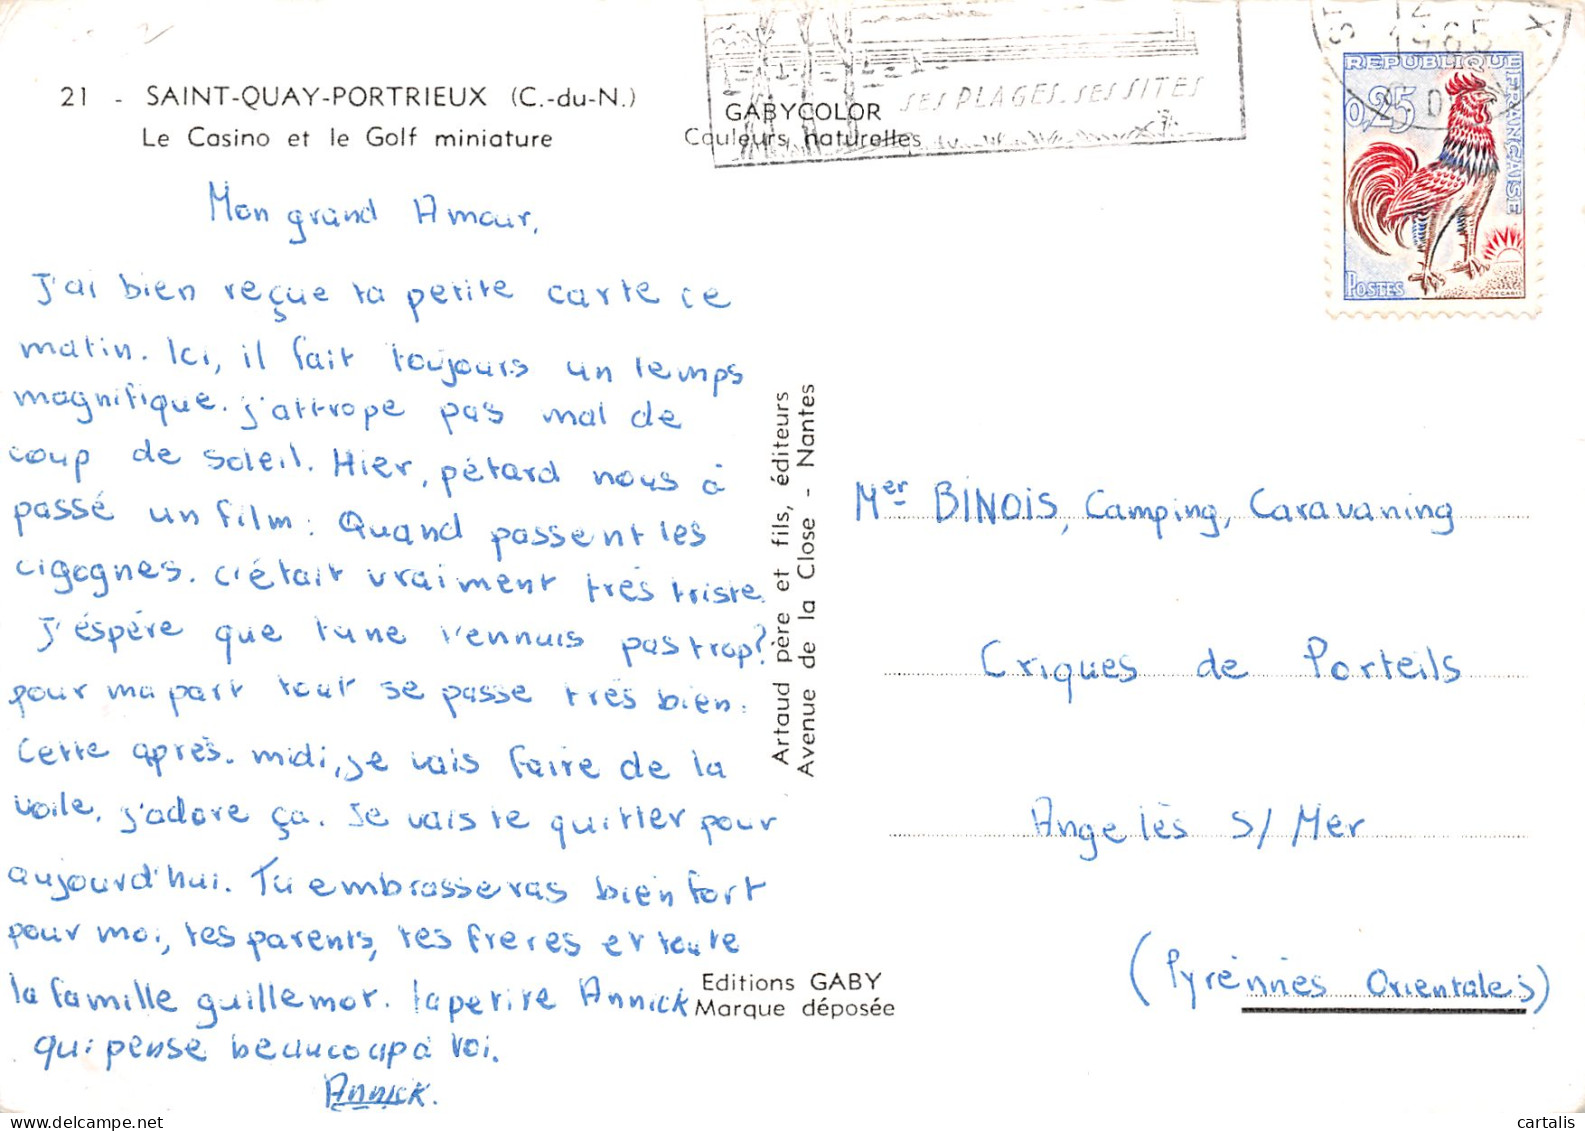 21 - SAINT-QUAY-PORTRIEUX (C.-du-N.)
Le Casino et le Golf miniature
GABYCOLOR
Couleurs naturelles
SES PLAGES. SES SITES
1965
REPUBLIQUE
FRANÇAISE
0,25
POSTES
Mon grand Amour,
J'ai bien reçue ta petite carte ce
matin. Ici, il fait toujours un temps
magnifique. j'attrope pas mal de
coup de soleil. Hier, pétard nous à
passé un film : Quand passent les
cigognes. c'était vraiment très triste.
J'éspère que tu ne t'ennuis pas trop?
pour ma part tout se passe très bien.
Cette après-midi, je vais faire de la
voile, j'adore ça. Je vais te quitter pour
aujourd'hui. Tu embrasseras bien fort
pour moi, tes parents, tes frères et toute
la famille guillemot. la petite Annick
qui pense beaucoup à toi.
Annick.
Artaud père et fils, éditeurs
Avenue de la Close - Nantes
Editions GABY
Marque déposée
Mer BINOIS, Camping, Caravaning
Criques de Porteils
Angelès S/ Mer
(Pyrénnées Orientales)
delcampe.net
cartalis